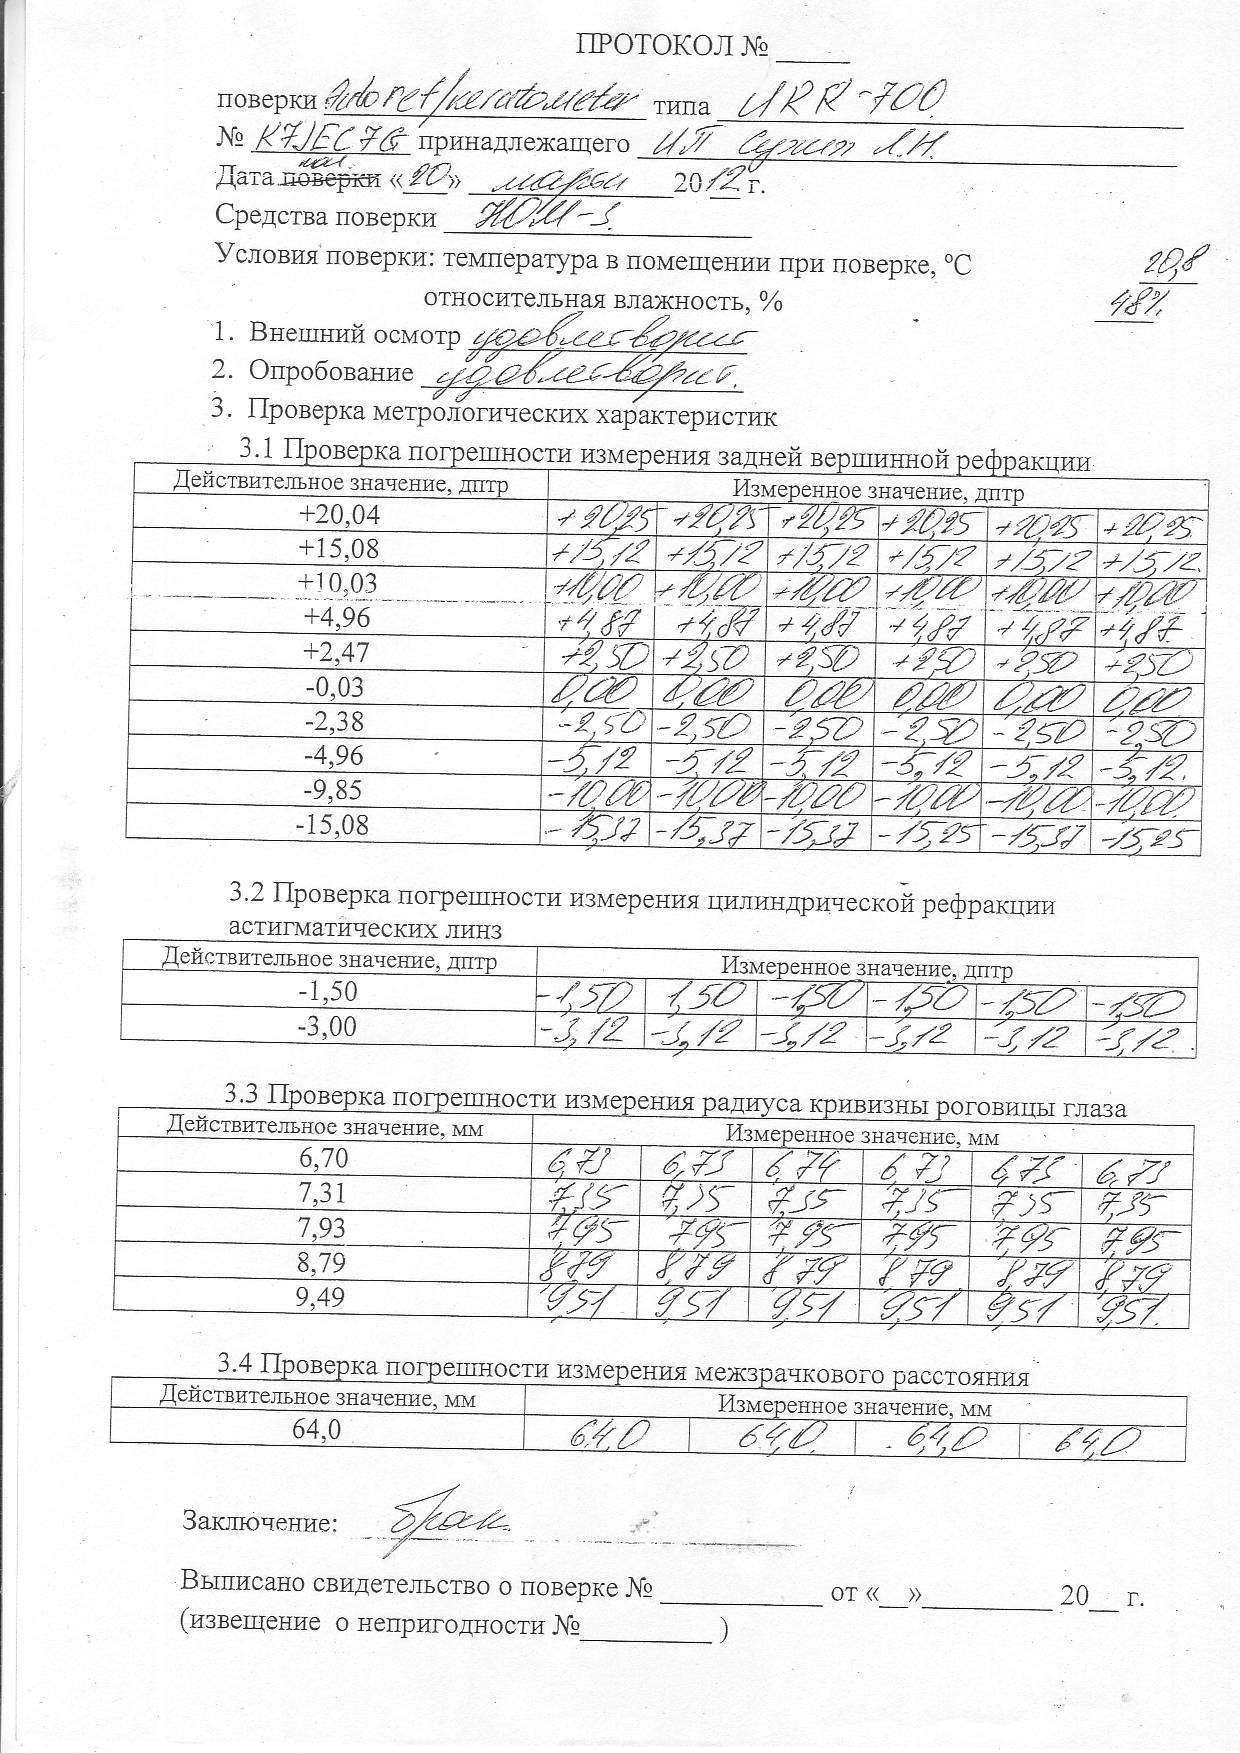 ПРОТОКОЛ № _____
поверки Autoref/keratometer типа URR-700
№ K7JEC7G принадлежащего ИП Л.Н.
Дата поверки «20» марта 2012 г.
Средства поверки НОМ-3.
Условия поверки: температура в помещении при поверке, ºС 20,8
относительная влажность, % 48%
1. Внешний осмотр удовлетворит
2. Опробование удовлетворит.
3. Проверка метрологических характеристик
3.1 Проверка погрешности измерения задней вершинной рефракции
Действительное значение, дптр Измеренное значение, дптр
+20,04 +20,25 +20,25 +20,25 +20,25 +20,25 +20,25
+15,08 +15,12 +15,12 +15,12 +15,12 +15,12 +15,12.
+10,03 +10,00 +10,00 +10,00 +10,00 +10,00 +10,00
+4,96 +4,87 +4,87 +4,87 +4,87 +4,87 +4,87
+2,47 +2,50 +2,50 +2,50 +2,50 +2,50 +2,50
-0,03 0,00 0,00 0,00 0,00 0,00 0,00
-2,38 -2,50 -2,50 -2,50 -2,50 -2,50 -2,50
-4,96 -5,12 -5,12 -5,12 -5,12 -5,12 -5,12.
-9,85 -10,00 -10,00 -10,00 -10,00 -10,00 -10,00
-15,08 -15,37 -15,37 -15,37 -15,25 -15,37 -15,25
3.2 Проверка погрешности измерения цилиндрической рефракции
астигматических линз
Действительное значение, дптр Измеренное значение, дптр
-1,50 -1,50 1,50 -1,50 -1,50 -1,50 -1,50
-3,00 -3,12 -3,12 -3,12 -3,12 -3,12 -3,12.
3.3 Проверка погрешности измерения радиуса кривизны роговицы глаза
Действительное значение, мм Измеренное значение, мм
6,70 6,73 6,73 6,74 6,73 6,73 6,73
7,31 7,35 7,35 7,35 7,35 7,35 7,35
7,93 7,95 7,95 7,95 7,95 7,95 7,95
8,79 8,79 8,79 8,79 8,79 8,79 8,79
9,49 9,51 9,51 9,51 9,51 9,51 9,51.
3.4 Проверка погрешности измерения межзрачкового расстояния
Действительное значение, мм Измеренное значение, мм
64,0 64,0 64,0 64,0 64,0
Заключение: брак.
Выписано свидетельство о поверке № ____________ от «__»__________ 20__ г.
(извещение о непригодности №__________ )